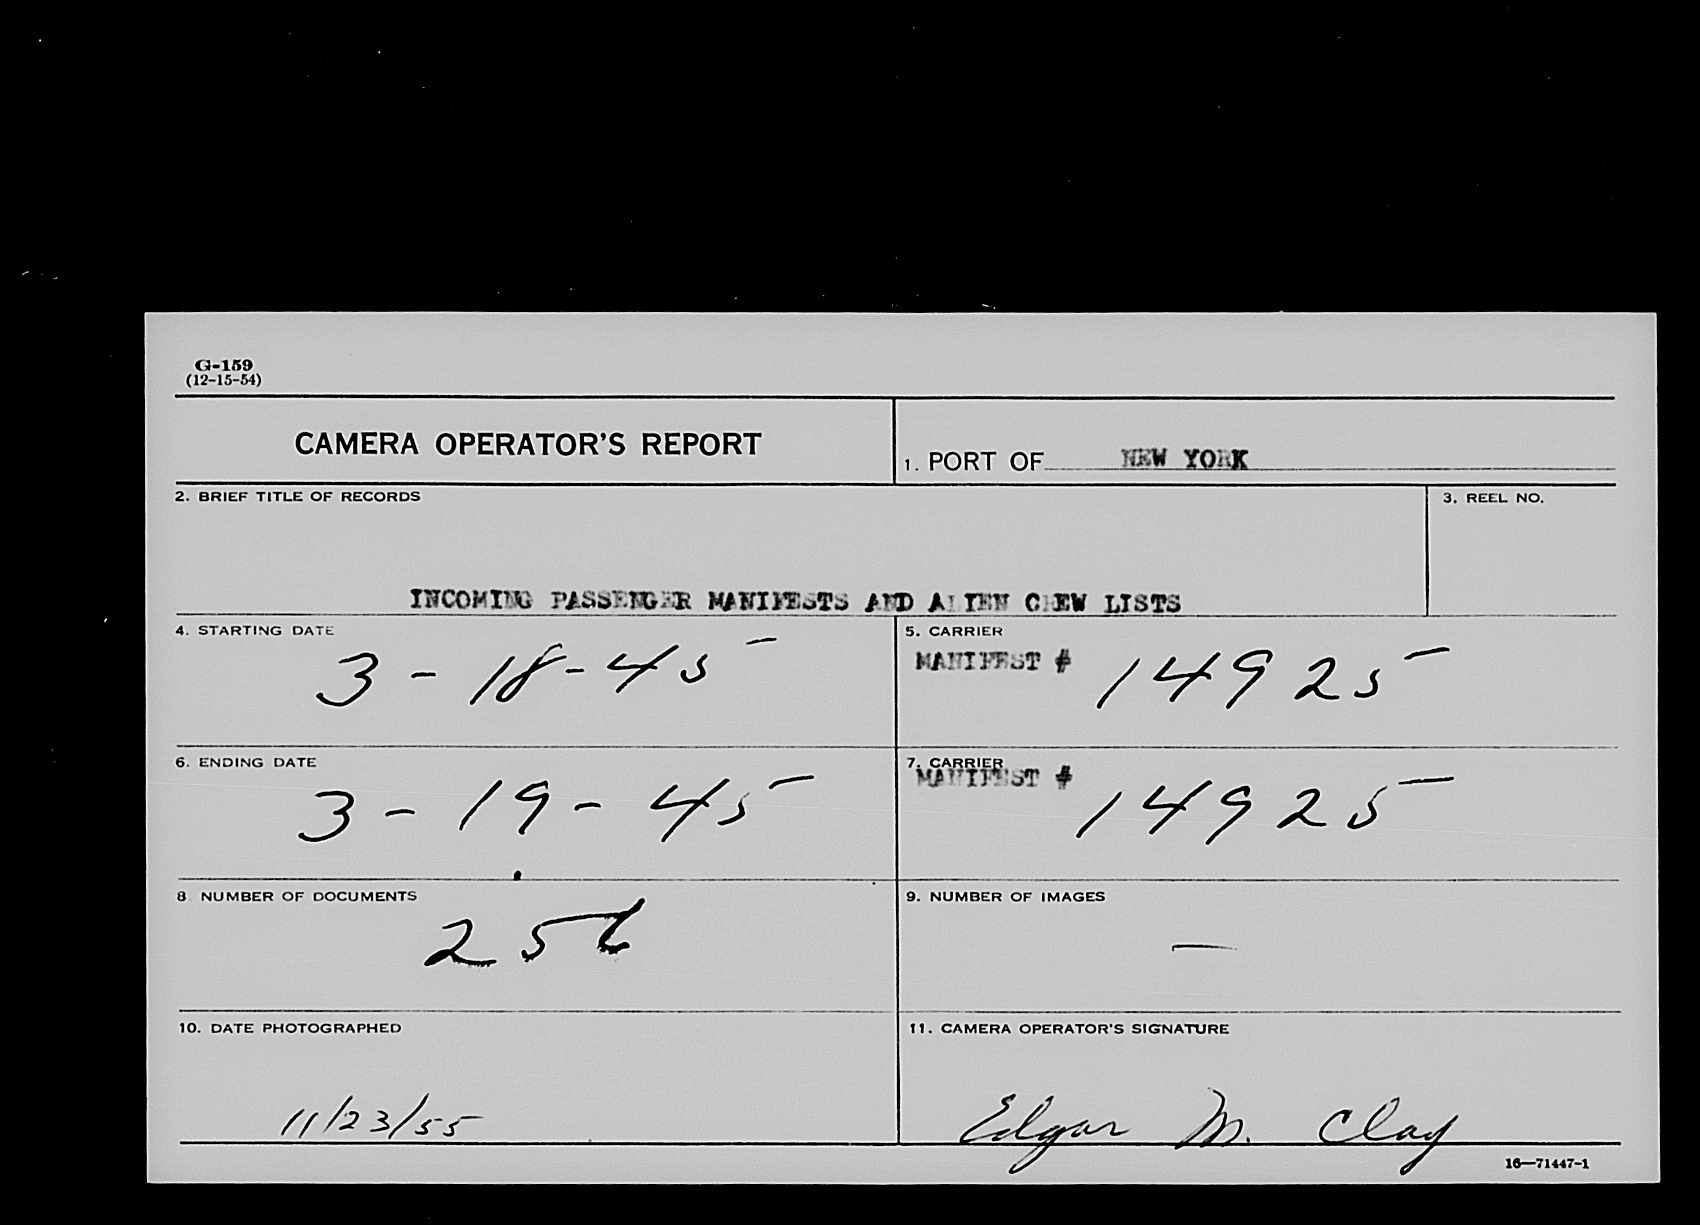 G-159
(12-15-54)
CAMERA OPERATOR'S REPORT
1. PORT OF NEW YORK
2. BRIEF TITLE OF RECORDS
3. REEL NO.
INCOMING PASSENGER MANIFESTS AND ALIEN CREW LISTS
4. STARTING DATE
3-18-45
5. CARRIER
MANIFEST # 14925
6. ENDING DATE
3-19-45
7. CARRIER
MANIFEST # 14925
8 NUMBER OF DOCUMENTS
256
9. NUMBER OF IMAGES
—
10. DATE PHOTOGRAPHED
11/23/55
11. CAMERA OPERATOR'S SIGNATURE
Edgar M. Clay
16—71447-1